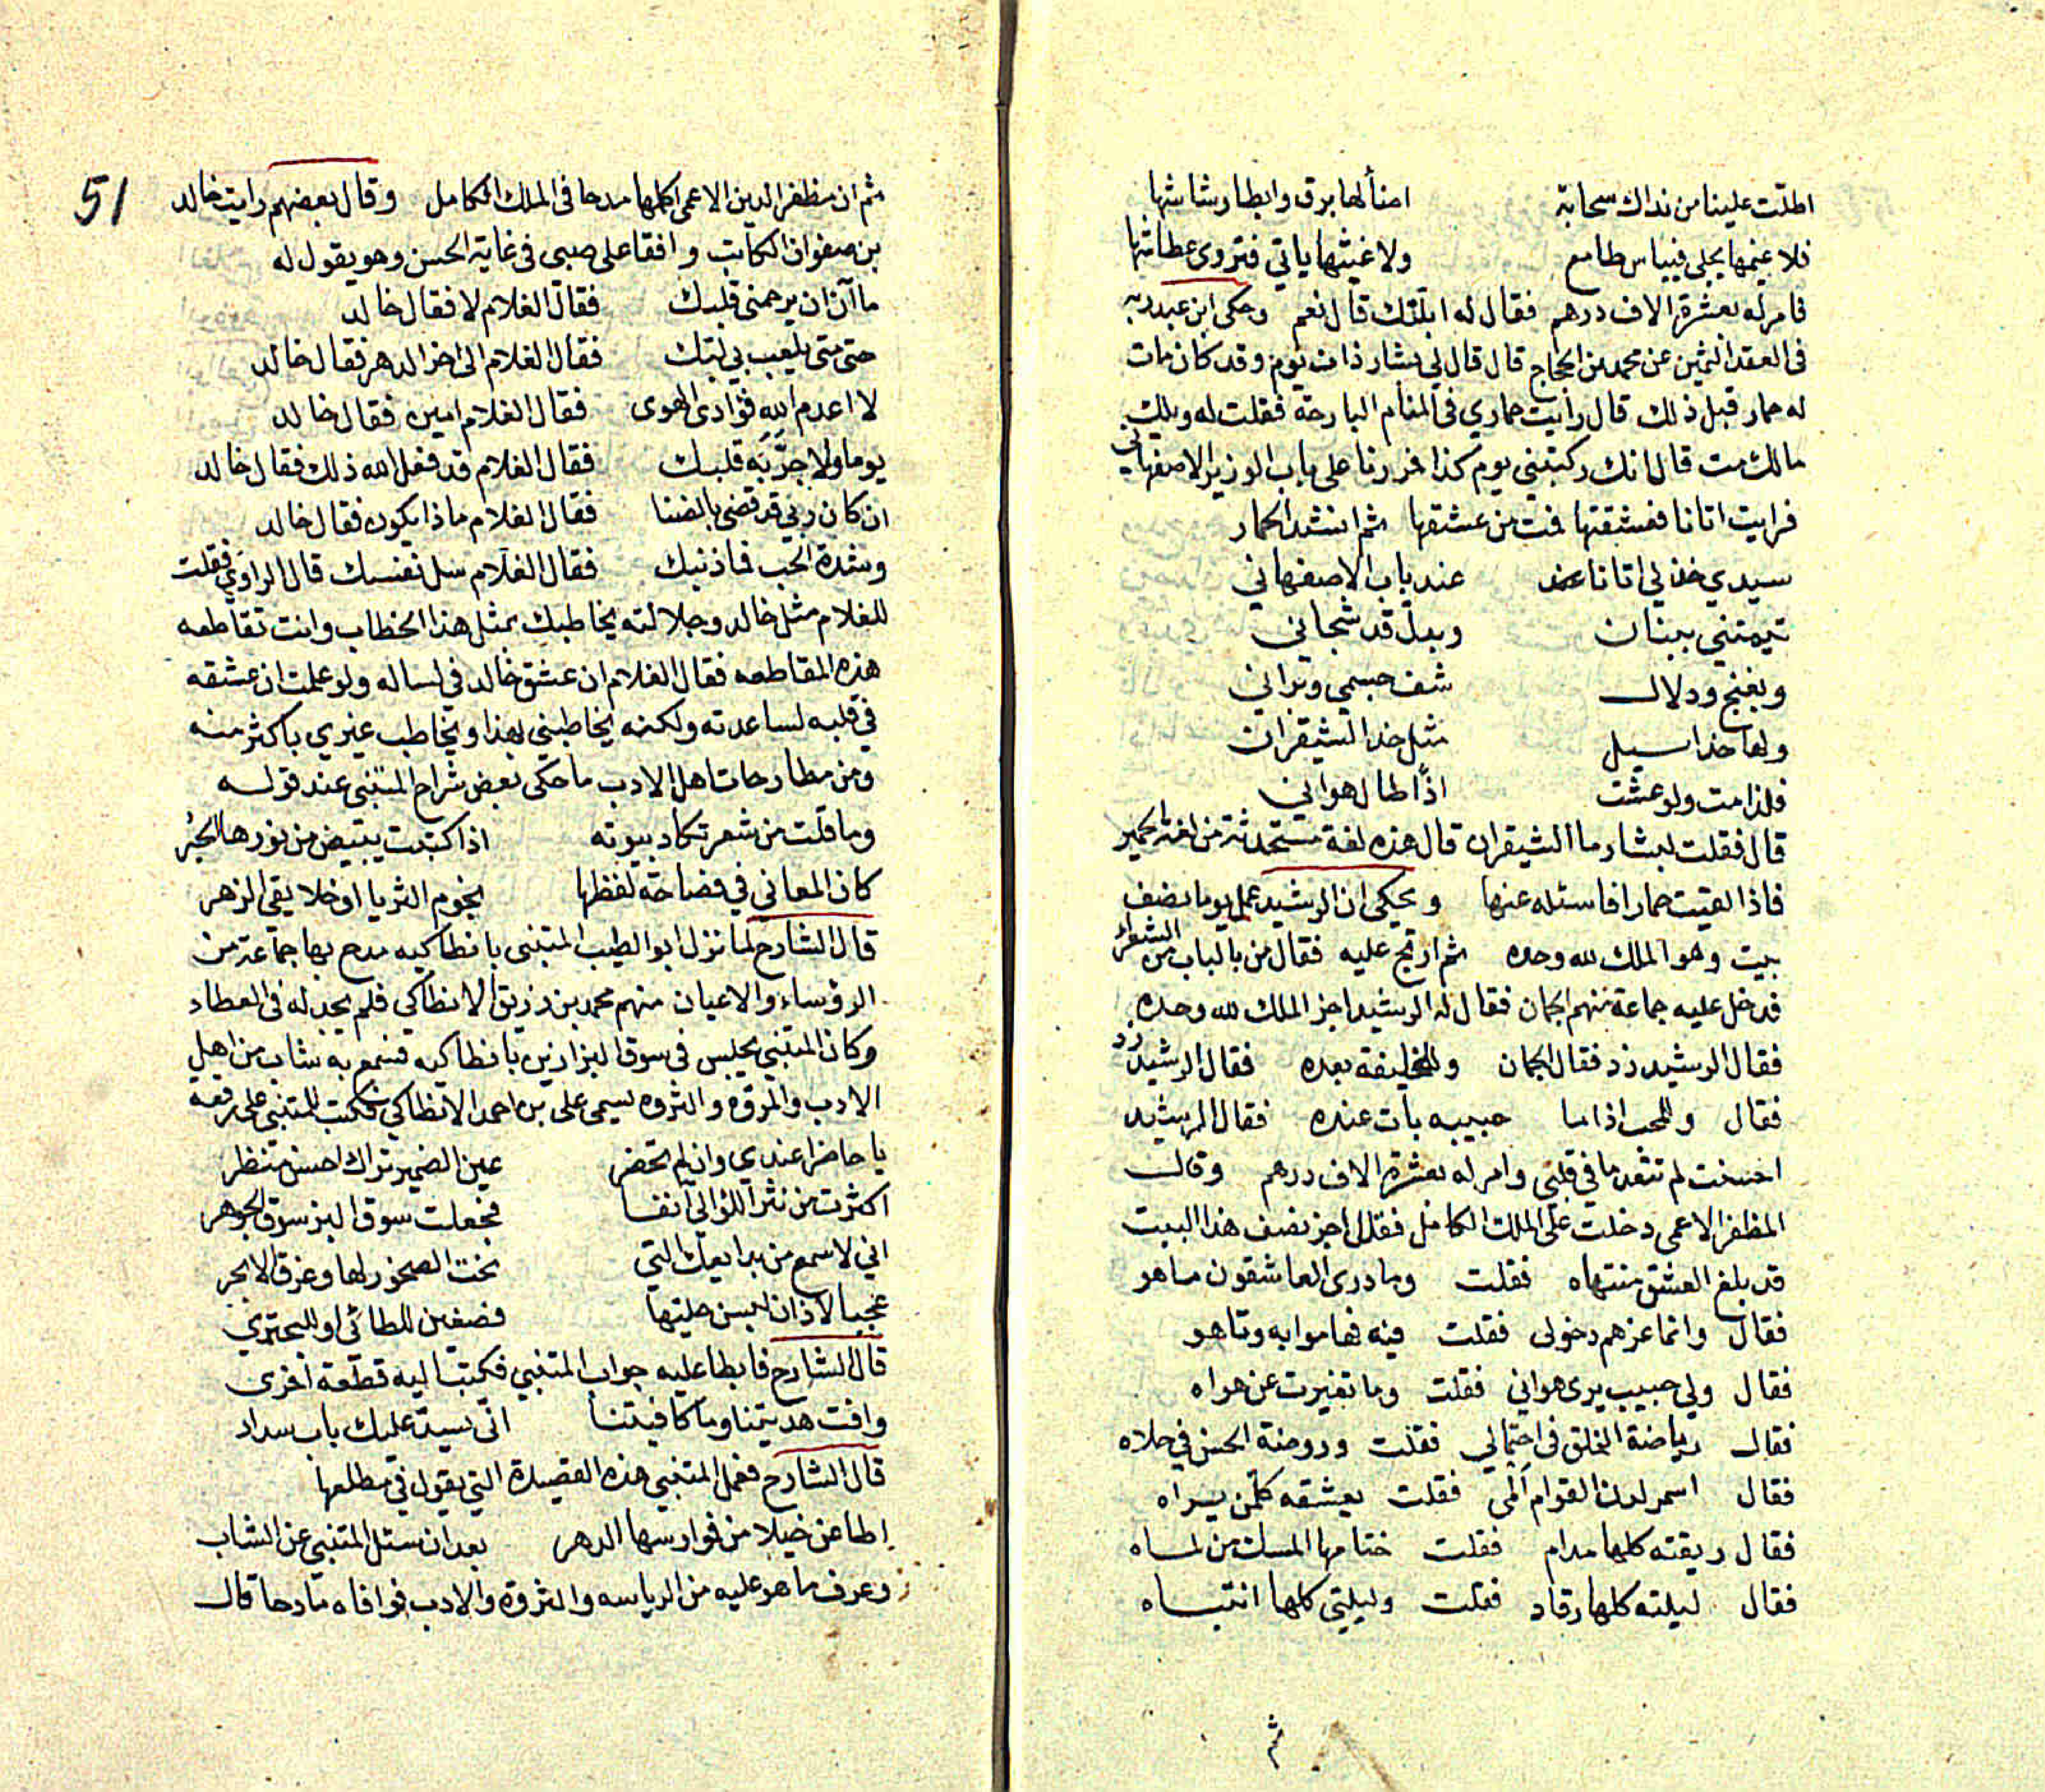 اطلت علينا من نداك سحابة   اضأ لها برق وابطا رشاشها
فلا غيمها يجلى فييأس طامع   ولا غيثها ياتي فتروى عطاشها
فامر له بعشرة الاف درهم فقال له ابلتك قال نعم وحكى ابن عبد ربه
فى العقد الثمين عن محمد بن الحجاج قال قال لي بشار ذات يوم وقد كان مات
له حمار قبل ذلك قال رأيت حماري فى المنام البارحة فقلت له ويلك
مالك مت قال انك ركبتني يوم كذا فمررنا على باب الوزير الاصفهاني
فرايت اتانا فعشقتها فمت من عشقها ثم انشد الحمار
سيدي خذ لي اتانا   عند باب الاصفهاني
تيمتني ببنان   وبدل قد شجاني
وبغنج ودلال   شف جسمي وبراني
ولها خد اسيل   مثل خد الشيقران
فلذا مت ولو عشت   اذًا طال هواني
قال فقلت لبشار ما الشيقران قال هذه لغة مستحدثة من لغة الحمير
فاذا لقيت حمارا فاسئله عنها ويحكى ان الرشيد عمل يوما نصف
بيت وهو الملك لله وحده ثم ارتج عليه فقال من بالباب من الشعراء
فدخل عليه جماعة منهم الجمان فقال له الرشيد اجز الملك لله وحده
فقال الرشيد زد فقال الجمان وللخليفة بعده فقال الرشيد زد
فقال وللمحب اذا ما حبيبه بات عنده فقال الرشيد
احسنت لم تتعد ما في قلبي وامر له بعشرة الاف درهم وقال
المظفر الاعمى دخلت على الملك الكامل فقال اجز نصف هذا البيت
قد بلغ العشق منتهاه فقلت وما درى العاشقون ما هو
فقال وانما غرهم دخولى فقلت فيه فهاموا به وتاهو
فقال ولي حبيب يرى هواني فقلت وما تغيرت عن هواه
فقال رياضة الخلق فى احتمالي فقلت وروضة الحسن في حلاه
فقال اسمر لدن القوام ألمى فقلت يعشقه كل من يراه
فقال ريقته كلها مدام فقلت ختامها المسك من لماه
فقال ليلته كلها رقاد فقلت وليلتي كلها انتباه
ثم
51
ثم ان مظفر الدين الاعمى اكملها مدحا فى الملك الكامل وقال بعضهم رايت خالد
بن صفوان الكاتب واقفا على صبى فى غاية الحسن وهو يقول له
ما آن ان يرحمني قلبك   فقال الغلام لا فقال خالد
حتى متى يلعب بي لبك   فقال الغلام الى اخر الدهر فقال خالد
لا اعدم الله فؤادى الهوى   فقال الغلام امين فقال خالد
يوما ولا جرّبه قلبك   فقال الغلام قد فعل الله ذلك فقال خالد
ان كان ربي قد قضى بالضنا   فقال الغلام ماذا يكون فقال خالد
وشدة الحب فما ذنبك   فقال الغلام سل نفسك قال الراوي فقلت
للغلام مثل خالد وجلالته يخاطبك بمثل هذا الخطاب وانت تقاطعه
هذه المقاطعه فقال الغلام ان عشق خالد في لساله ولو علمت ان عشقه
في قلبه لساعدته ولكنه يخاطبني بهذا ويخاطب غيري باكثر منه
ومن مطارحات اهل الادب ما حكى بعض شراح المتنبي عند قوله
وما قلت من شعر تكاد بيوته   اذا كتبت يبيض من نورها الحبر
كان المعاني في فصاحة لفظها   نجوم الثريا او خلايقي الزهر
قال الشارح لما نزل ابو الطيب المتنبي بانطاكيه مدح بها جماعة من
الرؤساء والاعيان منهم محمد بن رزيق الانطاكي فلم يجد له فى العطاء
وكان المتنبي يجلس فى سوق البزازين بانطاكيه فسمع به شاب من اهل
الادب والمروة والثروه يسمى على بن احمد الانطاكي فكتب للمتنبي على رقعه
يا حاضرا عندي وان لم تحضر   عين الضمير تراك احسن منظر
اكثرت من نثر اللؤالئ آنفا   فجعلت سوق البز سوق الجوهر
اني لاسمع من بدايعك التي   نحت الصخور لها وغرق الابحر
عجبا لاذان لبسن حليتها   فصغين للطائي او للبحتري
قال الشارح فابطا عليه جواب المتنبي فكتب اليه قطعة اخرى
وافت هديتنا وما كافيتنا   انى يسد عليك باب سداد
قال الشارح فعمل المتنبي هذه القصيدة التي يقول في مطلعها
اطاعن خيلا من فوارسها الدهر   بعد ان سئل المتنبي عن الشاب
وعرف ما هو عليه من الرياسه والثروة والادب فوافاه مادحا قال